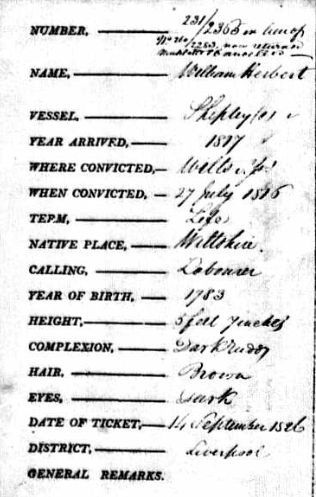 NUMBER, 231/2363 in lieu of
2253, now returned
NAME, William Herbert
VESSEL, Shipley (1)
YEAR ARRIVED, 1817
WHERE CONVICTED, Wells
WHEN CONVICTED, 27 July 1816
TERM, Life
NATIVE PLACE, Wiltshire
CALLING, Labourer
YEAR OF BIRTH, 1783
HEIGHT, 5 feet 7 inches
COMPLEXION, Dark ruddy
HAIR, Brown
EYES, Dark
DATE OF TICKET, 14 September 1826
DISTRICT, Liverpool
GENERAL REMARKS.